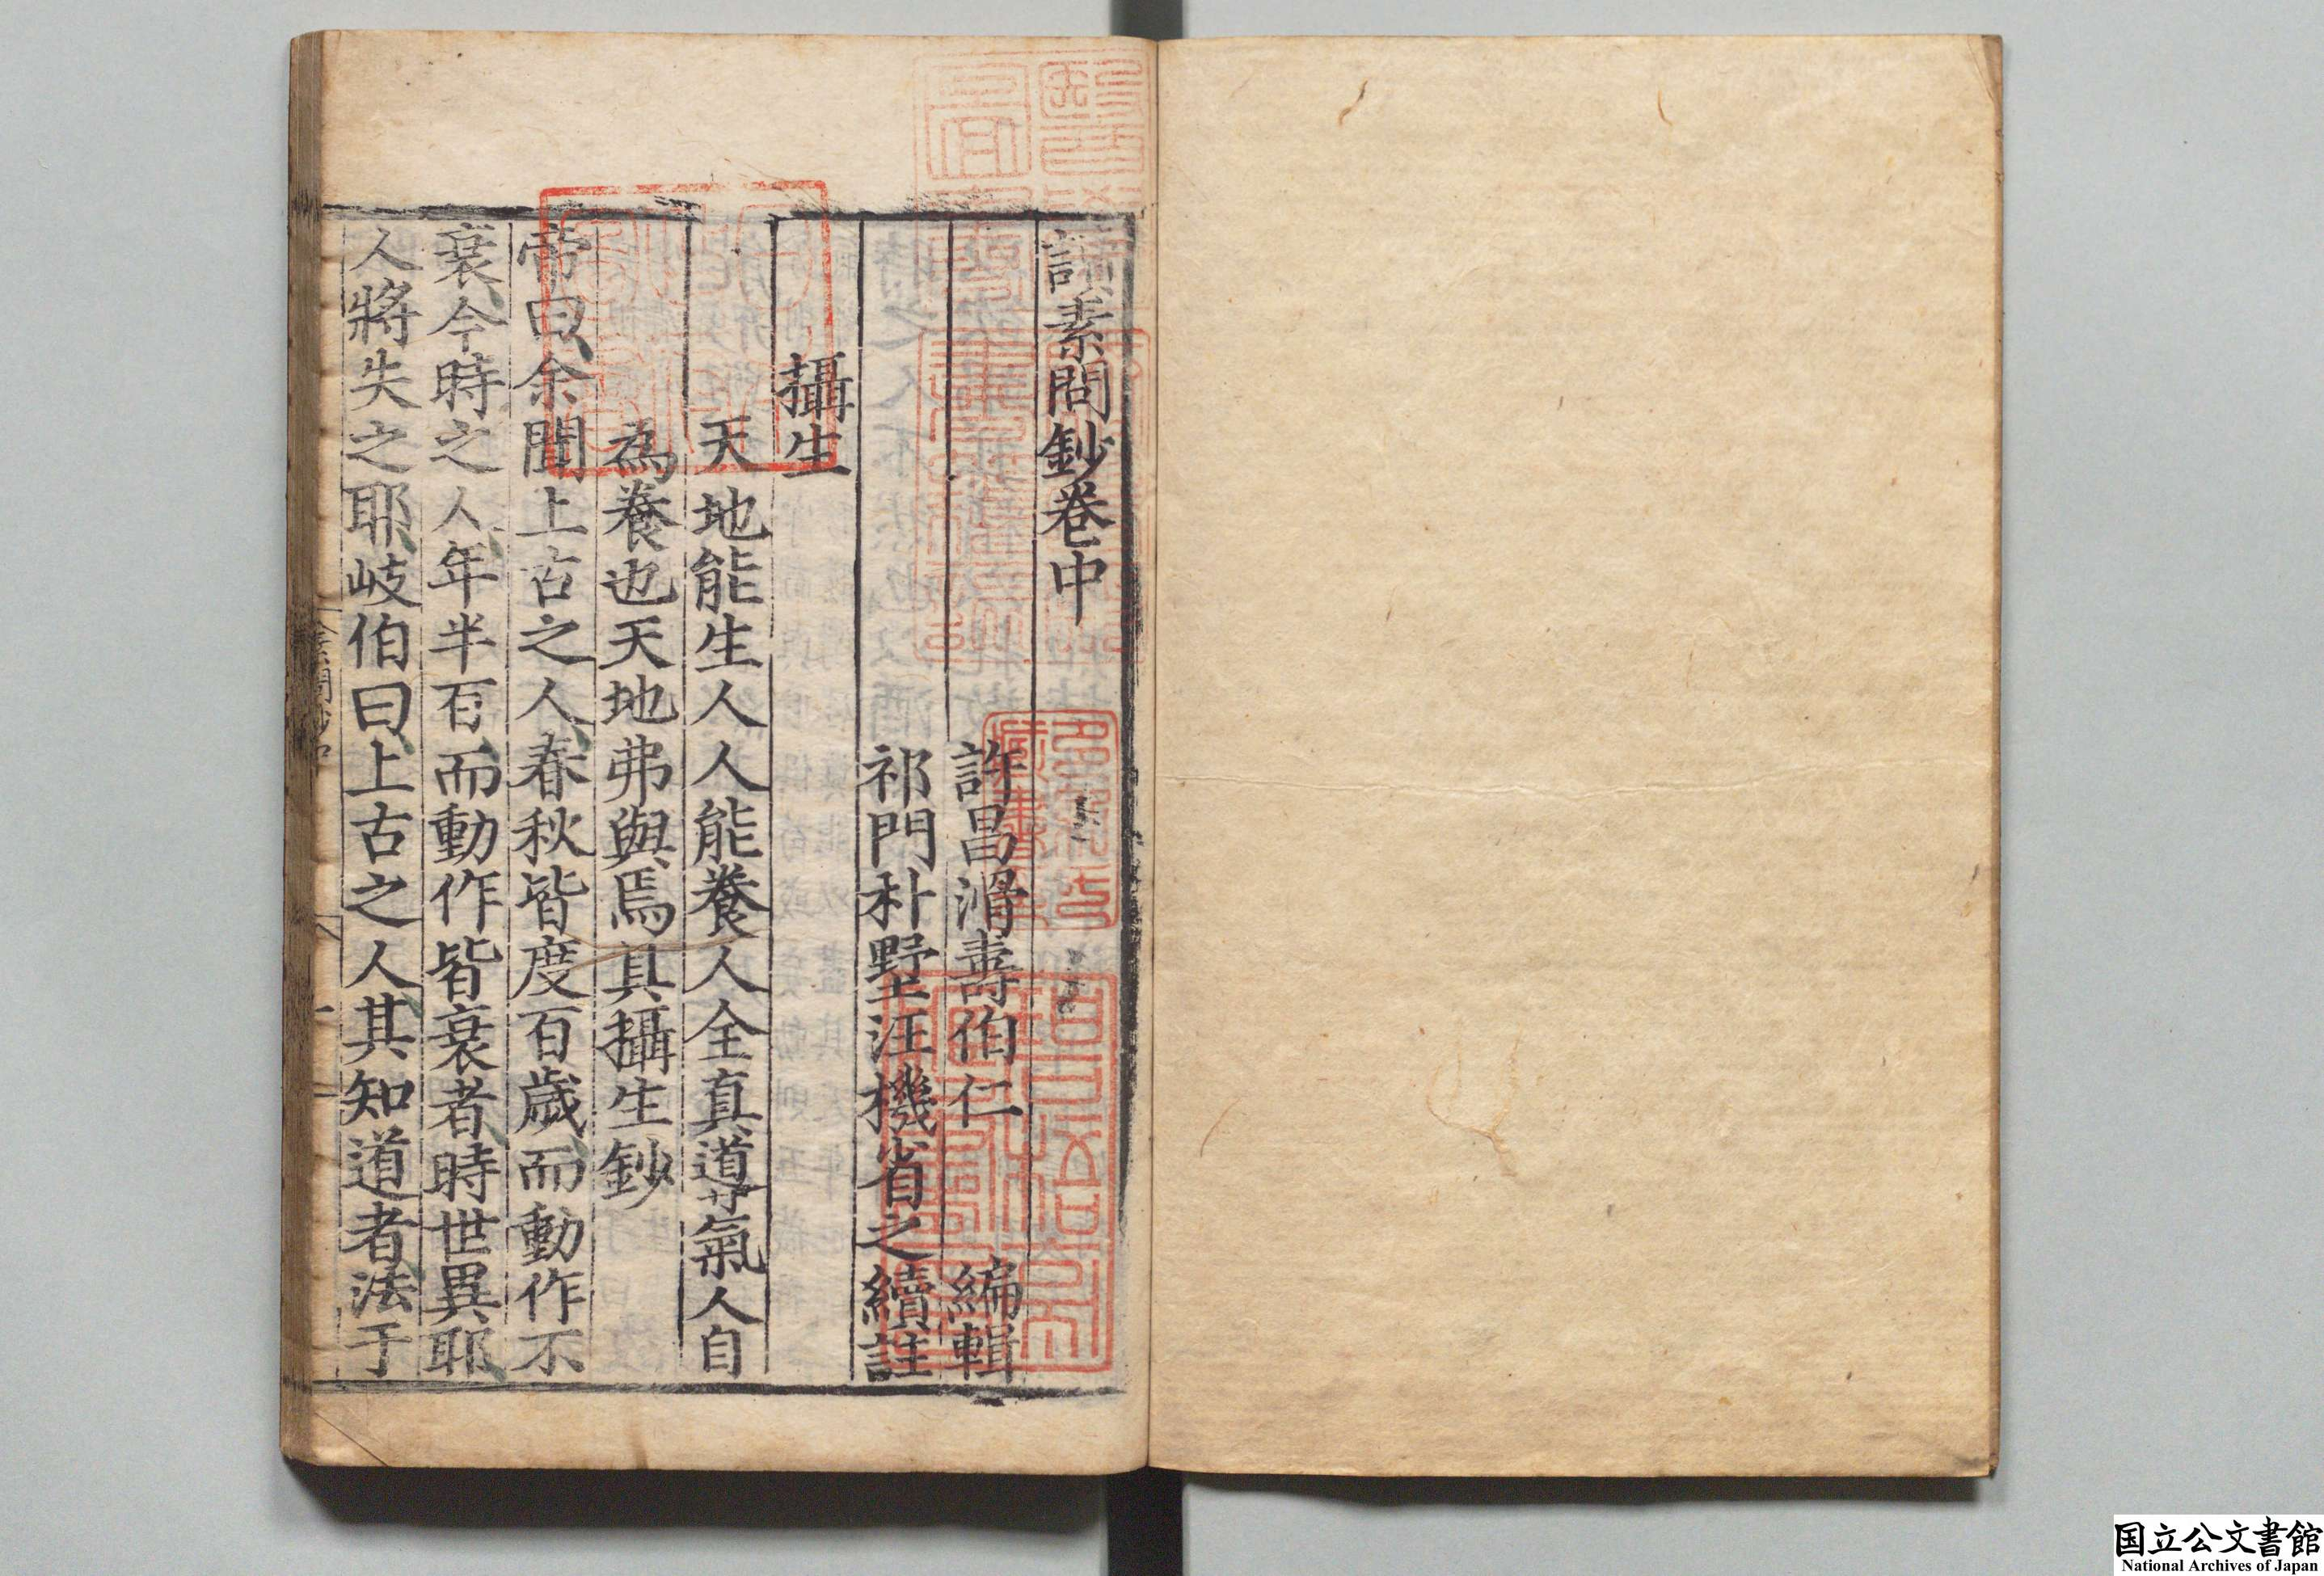 讀素問鈔卷中
許昌滑壽伯仁 編輯
祁門朴墅汪機省之續註
攝生
天地能生人人能養人全真導氣人自
為養也天地弗與焉具攝生鈔
帝曰余聞上古之人春秋皆度百歲而動作不
衰今時之人年半百而動作皆衰者時世異耶
人將失之耶岐伯曰上古之人其知道者法于
国立公文書館
National Archives of Japan